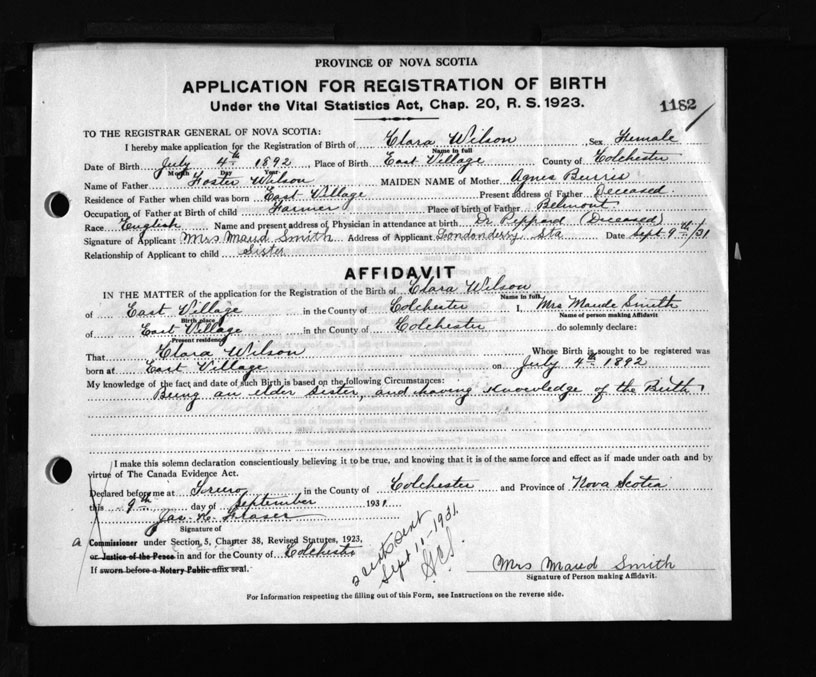 PROVINCE OF NOVA SCOTIA
APPLICATION FOR REGISTRATION OF BIRTH
Under the Vital Statistics Act, Chap. 20, R. S. 1923.
1182
TO THE REGISTRAR GENERAL OF NOVA SCOTIA:
I hereby make application for the Registration of Birth of Clara Wilson, Sex Female
Name in full
Date of Birth July 4th 1892 Place of Birth East Village County of Colchester
Month Day Year
Name of Father Foster Wilson MAIDEN NAME of Mother Agnes Burris
Residence of Father when child was born East Village Present address of Father Deceased.
Occupation of Father at Birth of child Farmer Place of birth of Father Belmont
Race English Name and present address of Physician in attendance at birth Dr Peppard (Deceased)
Signature of Applicant Mrs Maud Smith Address of Applicant Londonderry Sta Date Sept. 9th/31
Relationship of Applicant to child Sister
AFFIDAVIT
IN THE MATTER of the application for the Registration of the Birth of Clara Wilson
Name in full
of East Village in the County of Colchester I, Mrs Maude Smith
Birth place Name of person making Affidavit
of East Village in the County of Colchester do solemnly declare:
Present residence
That Clara Wilson Whose Birth is sought to be registered was
born at East Village on July 4th 1892
My knowledge of the fact and date of such Birth is based on the following Circumstances:
Being an elder sister, and having knowledge of the Birth
I make this solemn declaration conscientiously believing it to be true, and knowing that it is of the same force and effect as if made under oath and by
virtue of The Canada Evidence Act.
Declared before me at Truro in the County of Colchester and Province of Nova Scotia
this 9th day of September 1931
Jas. K. Fraser
Signature of
a Commissioner under Section 5, Chapter 38, Revised Statutes, 1923,
or Justice of the Peace in and for the County of Colchester
If sworn before a Notary Public affix seal.
2 certs sent
Sept 11-1931.
Mrs Maud Smith
Signature of Person making Affidavit.
For Information respecting the filling out of this Form, see Instructions on the reverse side.